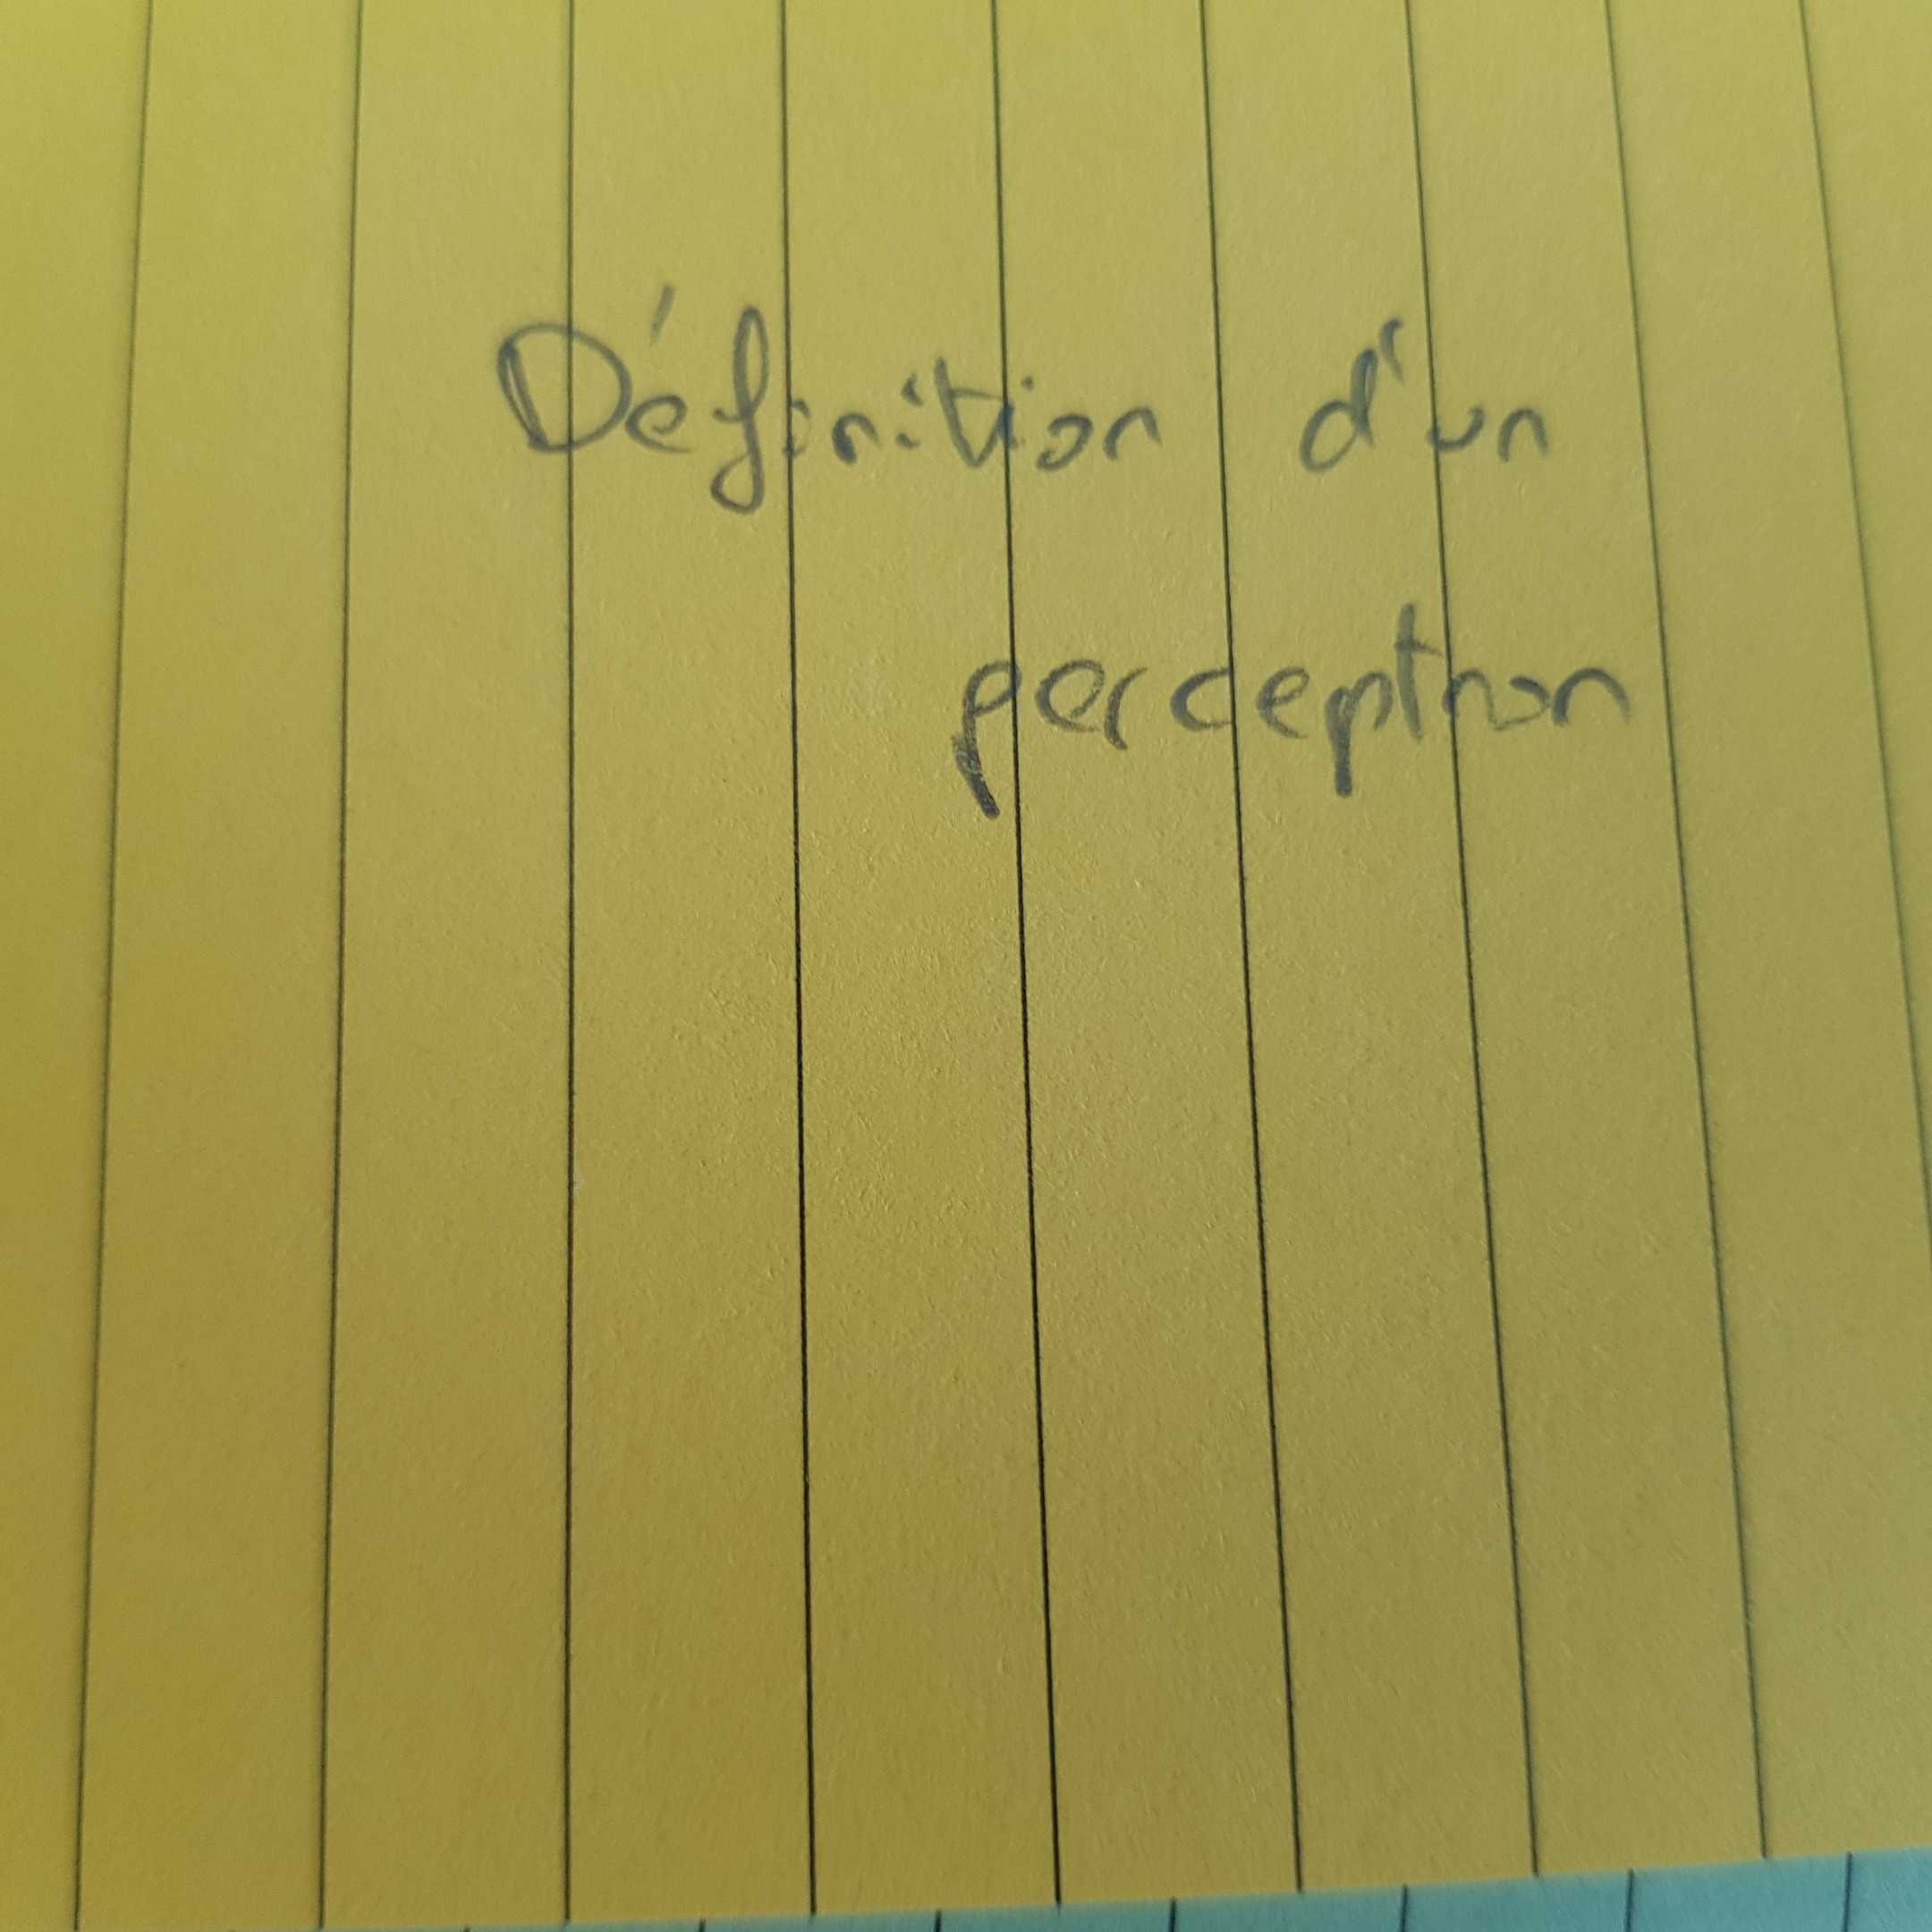 Définition d'un
perceptron